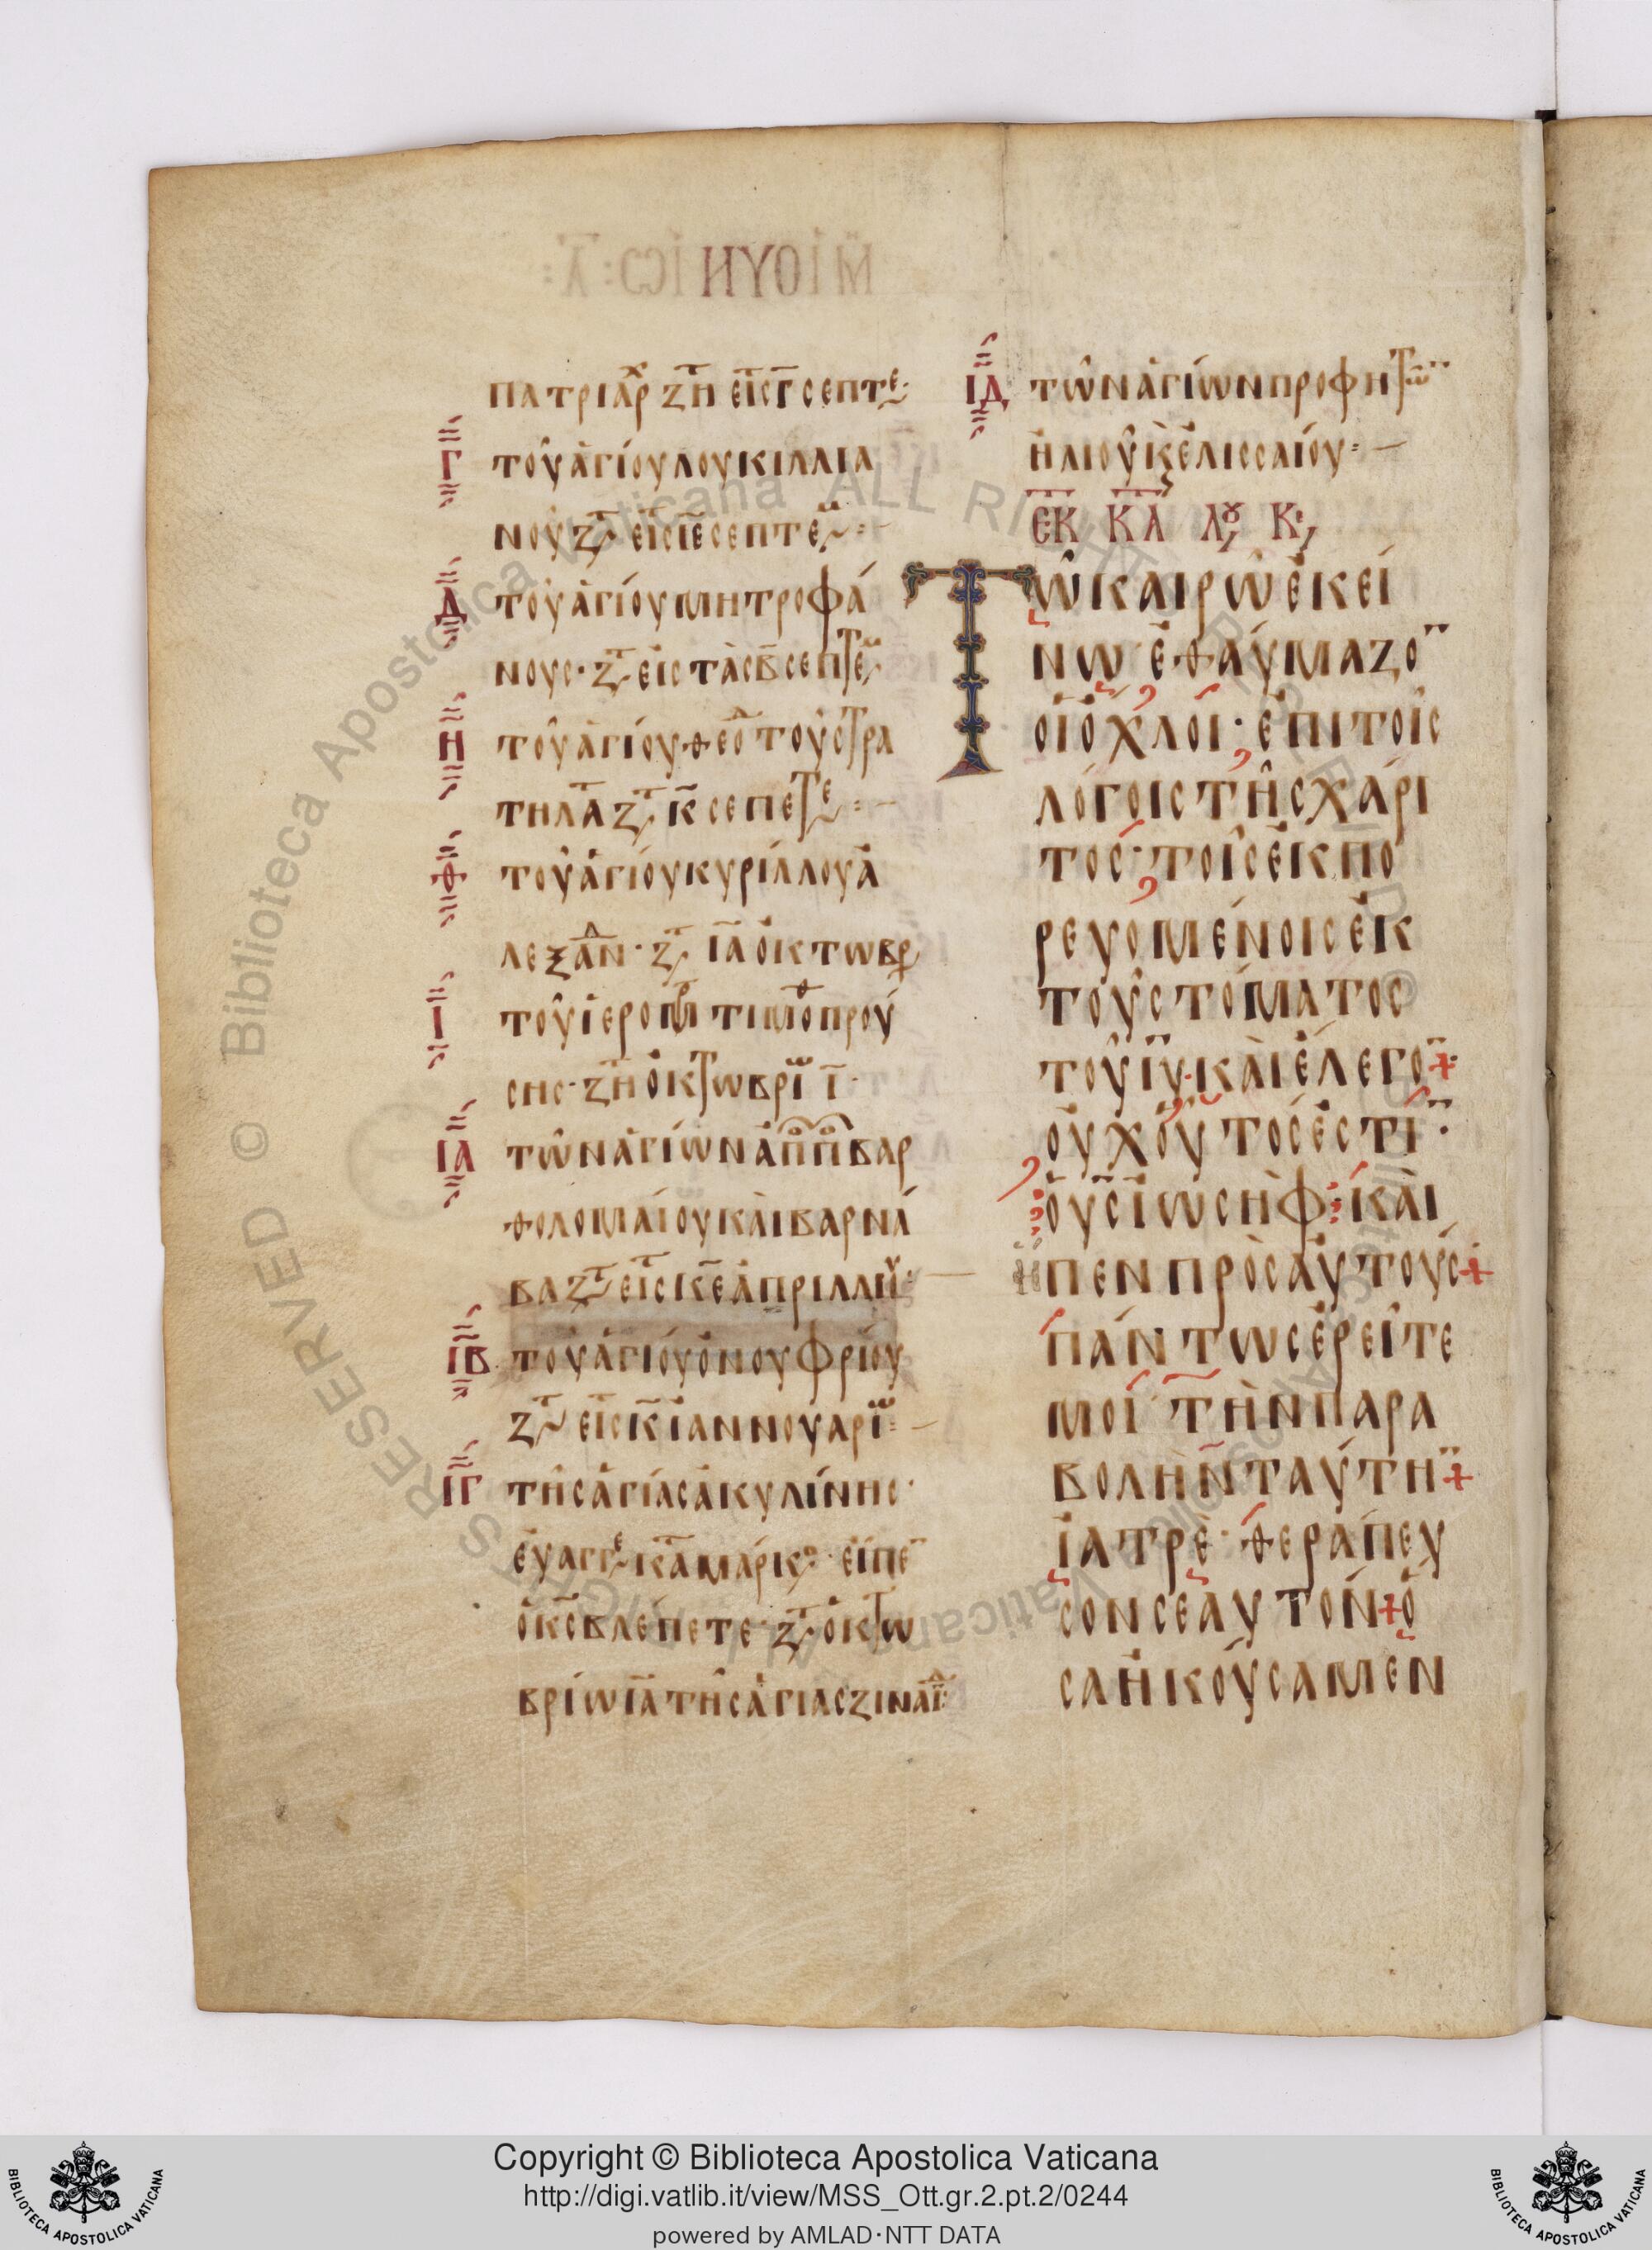 ΠΑΤΡΙΑΡΧ ΖΗΤ ΕΙΣ Γ ΣΕΠΤΕ·
Γ ΤΟῦ ἁΓίΟΥ ΛΟΥΚΙΛΛΙΑ
ΝΟῦ ΖΤ ΕΙΣ ΙΕ ΣΕΠΤΕΜ
Δ ΤΟῦ ἁΓίΟΥ ΜΗΤΡΟΦά
ΝΟΥΣ· ΖΤ ΕἰΣ ΤὰΣ Β ΣΕΠΤΕΜ
Η ΤΟῦ ἁΓίΟΥ ΘΕΟΔ ΤΟῦ ΣΤΡΑ
ΤΗΛΑΤ ΖΤ Κ ΣΕΠΕΤΕ
Θ ΤΟῦ ἁΓίΟΥ ΚΥΡίΛΛΟΥ ἀ
ΛΕΞΑΝΔ· ΖΤ ΙΑ ὀΚΤΩΒΡ
Ι ΤΟῦ ἱΕΡΟΜ ΤΙΜΟΘ ΠΡΟύ
ΣΗΣ· ΖΗΤ ὀΚΤΩΒΡΙΩ Ι·
ΙΑ ΤῶΝ ἁΓίΩΝ ἀΠΠ ΒΑΡ
ΘΟΛΟΜΑίΟΥ ΚΑὶ ΒΑΡΝά
ΒΑ ΖΤ ΕΙΣ ΚΕ ἀΠΡΙΛΛΙΟΥ
ΙΒ ΤΟῦ ἁΓίΟΥ ὀΝΟΥΦΡίΟΥ
ΖΤ ΕΙΣ Κ ἰΑΝΝΟΥΑΡΙΩ
ΙΓ ΤῆΣ ἁΓίΑΣ ἀΚΥΛίΝΗΣ·
ΕὐΑΓΓΕ ΚΑΤ ΜάΡΚΟ· ΕἶΠΕ
ὁ ΚΣ ΒΛέΠΕΤΕ· ΖΤ ὀΚΤΩ
ΒΡίΩ ΙΑ ΤῆΣ ἁΓΙΑΣ ΖΙΝΑΙΔ
ΙΔ ΤῶΝ ἁΓίΩΝ ΠΡΟΦΗΤῶ
ἠΛΙΟῦ Κ ἐΛΙΣΣΑίΟΥ
ΕΚ ΚΑΤ ΛΟΥΚ
Τῶ ΚΑΙΡῶ ἐΚΕί
ΝΩ ἐΘΑύΜΑΖΟ
Οἱ ὄΧΛΟΙ· ἐΠΙ ΤΟῖΣ
ΛόΓΟΙΣ ΤῆΣ ΧάΡΙ
ΤΟΣ· ΤΟῖΣ ἐΚΠΟ
ΡΕΥΟΜέΝΟΙΣ ἐΚ
ΤΟῦ ΣΤόΜΑΤΟΣ
ΤΟῦ ΙΥ· ΚΑὶ ἔΛΕΓΟ
ΟὐΧ ΟὗΤΟΣ ἐΣΤΙ·
ὁ ΥΣ ἰΩΣΗΦ· ΚΑὶ
Εἶ
ΠΕΝ ΠΡὸΣ ΑὐΤΟύΣ
ΠάΝΤΩΣ ἐΡΕῖΤΕ
ΜΟΙ ΤὴΝ ΠΑΡΑ
ΒΟΛὴΝ ΤΑύΤΗ
ἰΑΤΡὲ· ΘΕΡάΠΕΥ
ΣΟΝ ΣΕΑΥΤΟΝ ὅ
ΣΑ ἠΚΟύΣΑΜΕΝ
Copyright © Biblioteca Apostolica Vaticana
http://digi.vatlib.it/view/MSS_Ott.gr.2.pt.2/0244
powered by AMLAD·NTT DATA
BIBLIOTECA APOSTOLICA VATICANA
BIBLIOTECA APOSTOLICA VATICANA